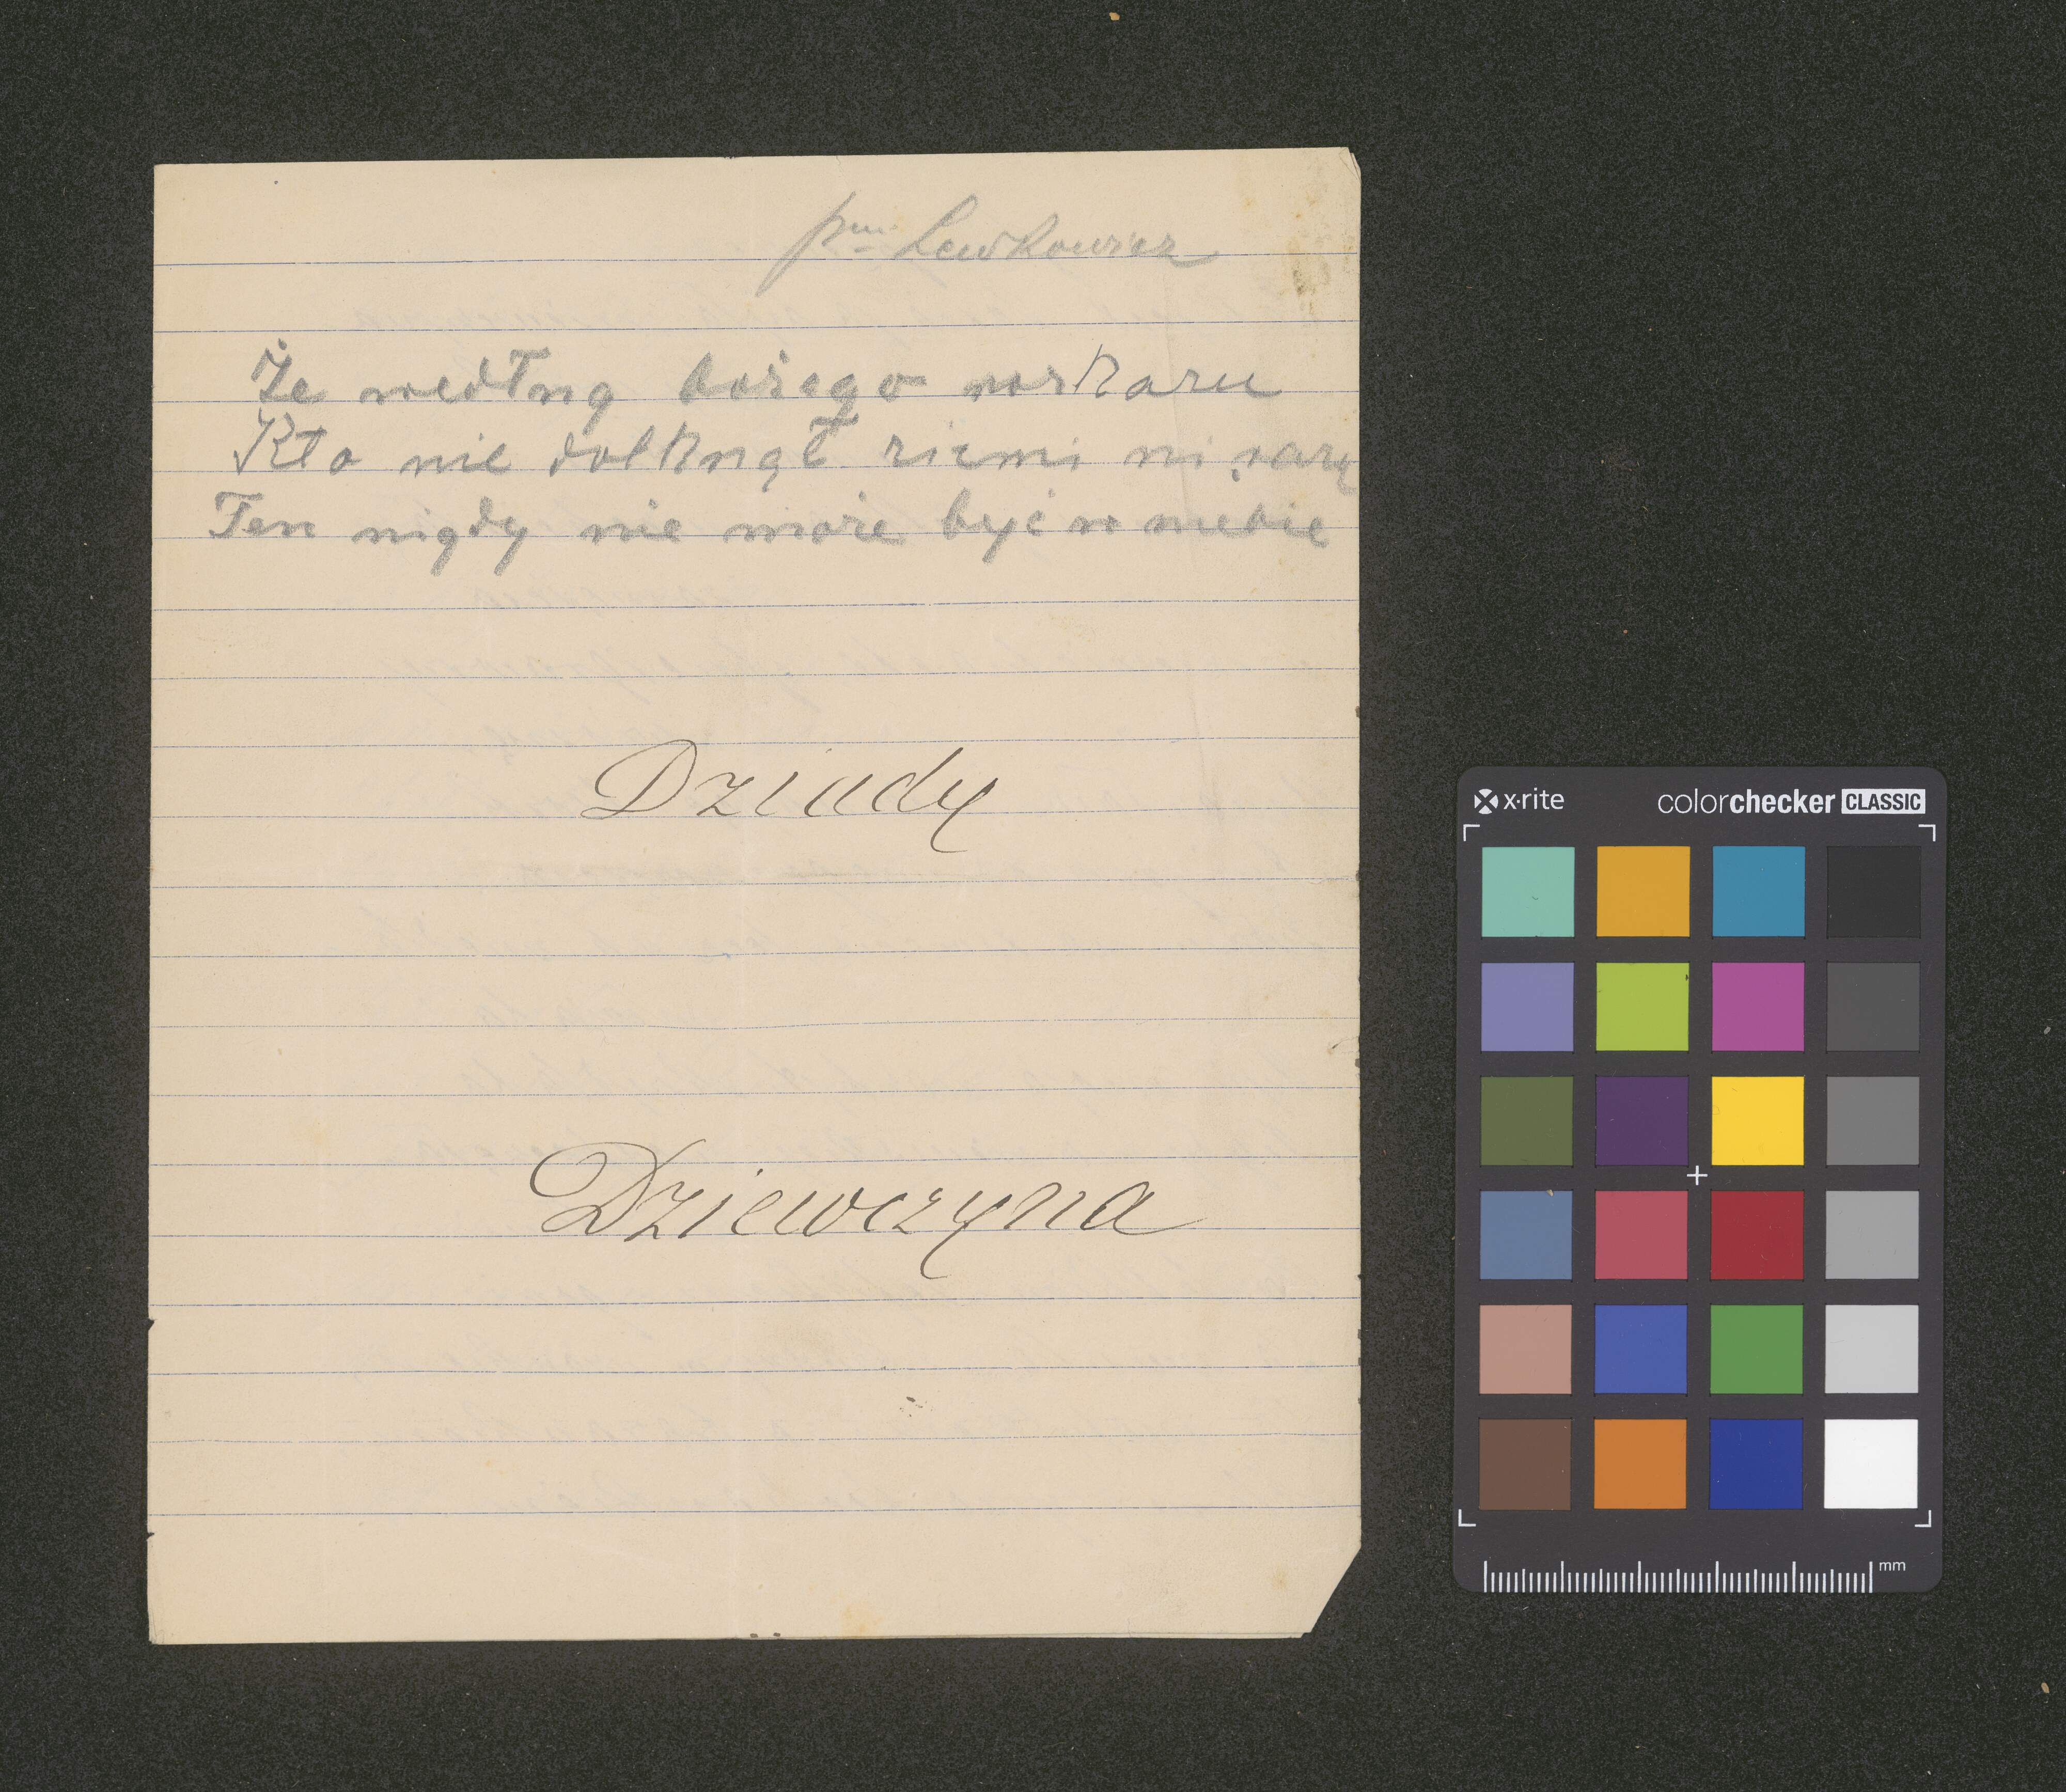 pm Lewkowicz
Że według bożego rozkazu
Kto nie dotknął ziemi ni razu
Ten nigdy nie może być w niebie
Dziady
Dziewczyna
x·rite colorchecker CLASSIC
mm